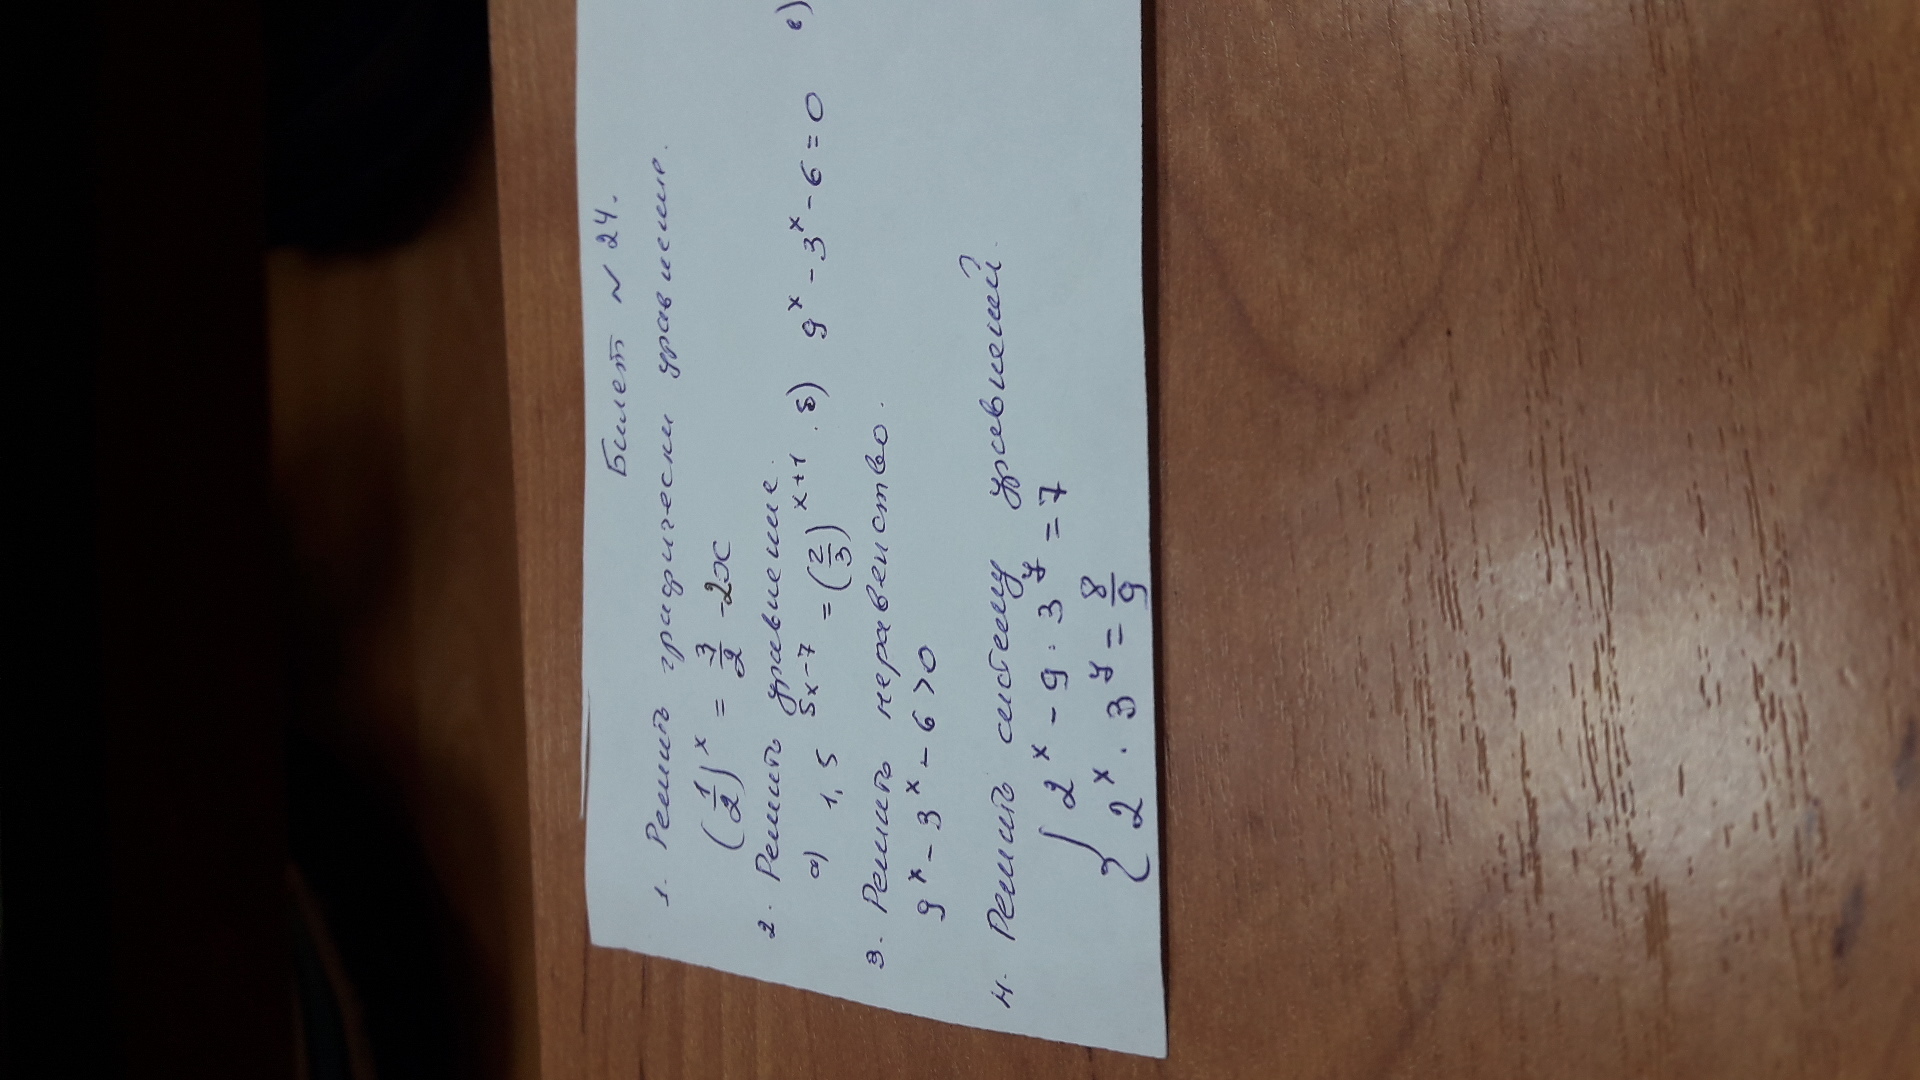 Билет N 24.
1. Решить графически уравнение.
(1/2)^x = 3/2 - 2x
2. Решить уравнение.
а) 1,5^(5x-7) = (2/3)^(x+1). б) 9^x - 3^x - 6 = 0 в)
3. Решить неравенство.
9^x - 3^x - 6 > 0
4. Решить систему уравнений.
{ 2^x - 9 · 3^y = 7
2^x · 3^y = 8/9